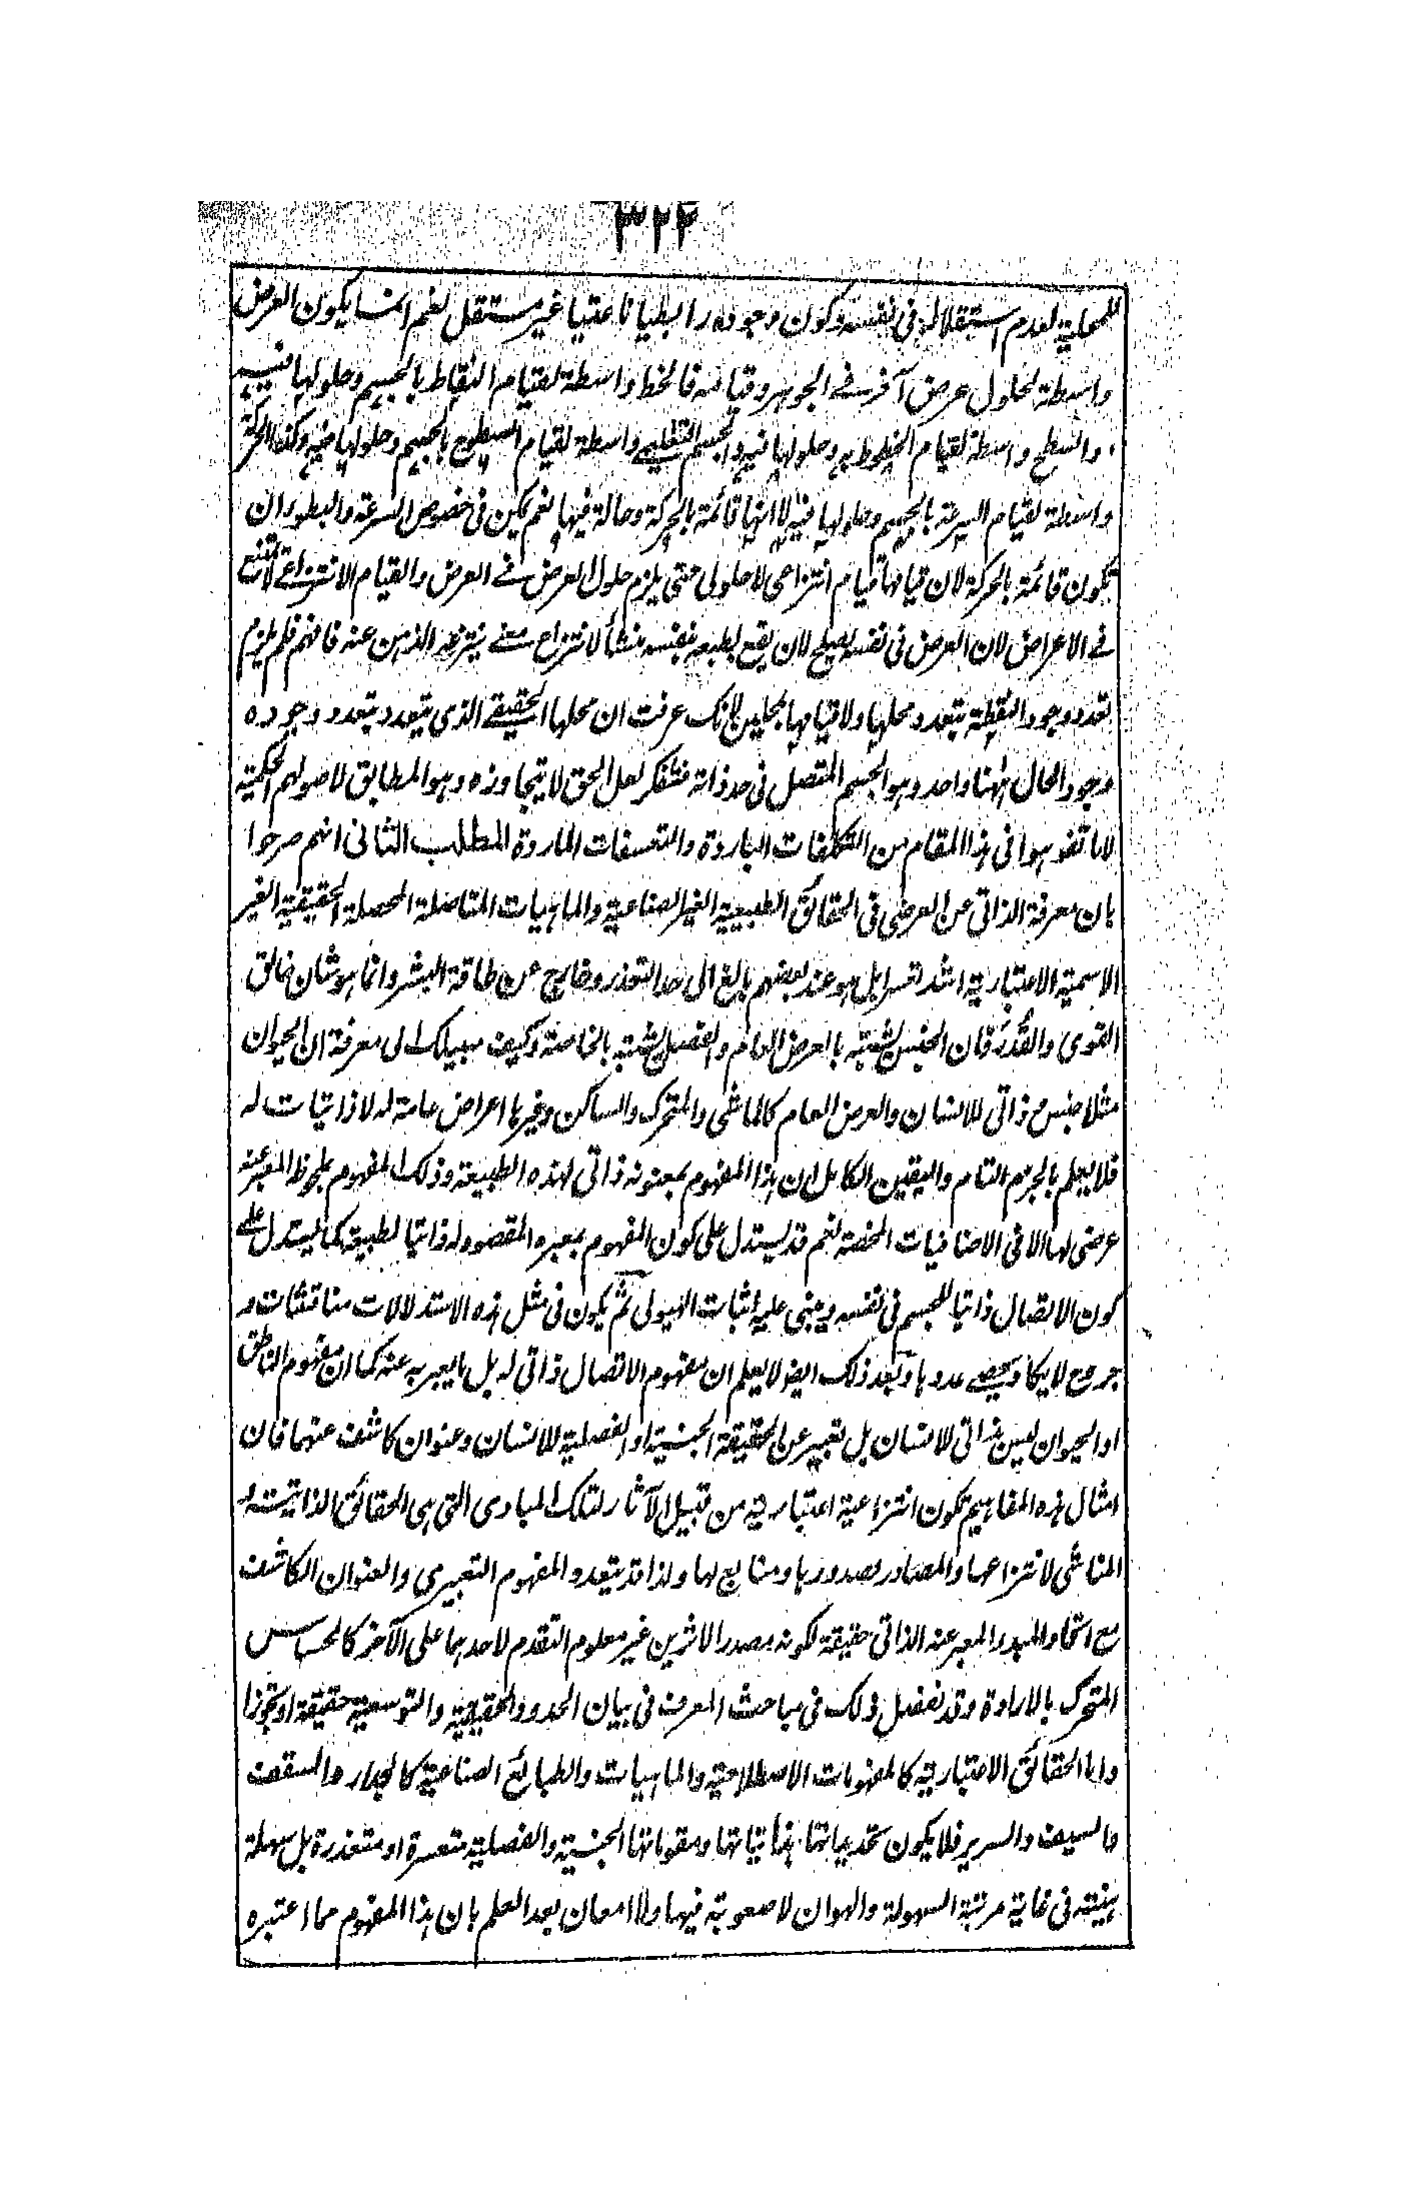 ٣٢٤
للمحلية لعدم استقلاله فى نفسه وكون وجوده رابطيا ناعتيا غير مستقل نعم انما يكون العرض
واسطة لحلول عرض آخر فے الجوهر وقيامه فالخط واسطة لقيام النقاط بالجسم وحلولها فيه
والسطح واسطة لقيام الخطوط به وحلولها فيه والجسم التعليمے واسطة لقيام السطوح بالجسم وحلولها فيه وكذا الحركة
واسطة لقيام السرعة بالجسم وحلولها فيه لا انها قائمة بالحركة وحالة فيها نعم يمكن فى خصوص السرعة والبطوء ان
تكون قائمة بالحركة لان قيامها قيام انتزاعى لا حلولى حتى يلزم حلول العرض فے العرض والقيام الانتزاعے لا يمتنع
فے الاعراض لان العرض فى نفسه يصلح لان يقع بطبعه بنفسه منشأ لانتزاع معنے ينتزعه الذهن عنه فافهم فلم يلزم
تعدد وجود النقطة بتعدد محلها ولا قيامها بمحلين لانك عرفت ان محلها الحقيقے الذى يتعدد بتعدد وجوده
وجود الحال ههنا واحد وهو الجسم المتصل فى حد ذاته فتفكر لعل الحق لا يتجاوزه وهو المطابق لاصولهم الحكمية
لا ما تفوهوا فى هذا المقام من التكلفات الباردة والتعسفات الماردة المطلب الثانى انهم صرحوا
بان معرفة الذاتى عن العرضى فى الحقائق الطبيعية الغير الصناعية والماهيات المتاصلة المحصلة الحقيقية الغير
الاسمية الاعتبارية اشد تعسرا بل هو عند بعضهم بالغ الى حد التعذر وخارج عن طاقة البشر وانما هو شان خالق
القوى والقدر فان الجنس يشتبه بالعرض العام والفصل يشتبه بالخاصة وكيف سبيلك الى معرفة ان الحيوان
مثلا جنس وذاتى للانسان والعرض العام كالماشى والمتحرك والساكن وغيرها اعراض عامة له لا ذاتيات له
فلا يعلم بالجزم التام واليقين الكامل ان هذا المفهوم بمعنونه ذاتى لهذه الطبيعة وذلك المفهوم بلحوظ المعبر عنه
عرضى لها الا فى الاضافيات المحضة نعم قد يستدل على كون المفهوم بمعبره المقصود له ذاتيا لطبيعة كما يستدل علے
كون الاتصال ذاتيا للجسم فى نفسه ويبنى عليه اثبات الهيولى ثم يكون فى مثل هذه الاستدلالات مناقشات و
جروح لا يكاد يحصے عددها وبعد ذلك ايضا لا يعلم ان مفهوم الاتصال ذاتى له بل ما يعبر به عنه كما ان مفهوم الناطق
او الحيوان ليس بذاتى للانسان بل تعبير عن الحقيقة الجنسية او الفصلية للانسان وعنوان كاشف عنهما فان
امثال هذه المفاهيم تكون انتزاعية اعتبارية من قبيل الآثار لتلك المبادى التى هى الحقائق الذاتية و
المناشى لانتزاعها والمصادر لصدورها ومنابع لها ولذا قد يتعدد المفهوم التعبيرى والعنوان الكاشف
مع اتحاد المبدء المعبر عنه الذاتى حقيقة لكونه مصدر الاثرين غير معلوم التقدم لاحدهما على الآخر كالحساس
المتحرك بالارادة وقد نفصل ذلك فى مباحث المعرف فى بيان الحدود الحقيقية والتوسعية حقيقة او تجوزا
واما الحقائق الاعتبارية كالمفهومات الاصطلاحية والماهيات والطبائع الصناعية كالجدار والسقف
والسيف والسرير فلا يكون تحديداتها بذاتياتها ومقوماتها الجنسية والفصلية متعسرة او متعذرة بل سهلة
هينة فى غاية مرتبة السهولة والهوان لا صعوبة فيها ولا امعان بعد العلم بان هذا المفهوم مما اعتبره